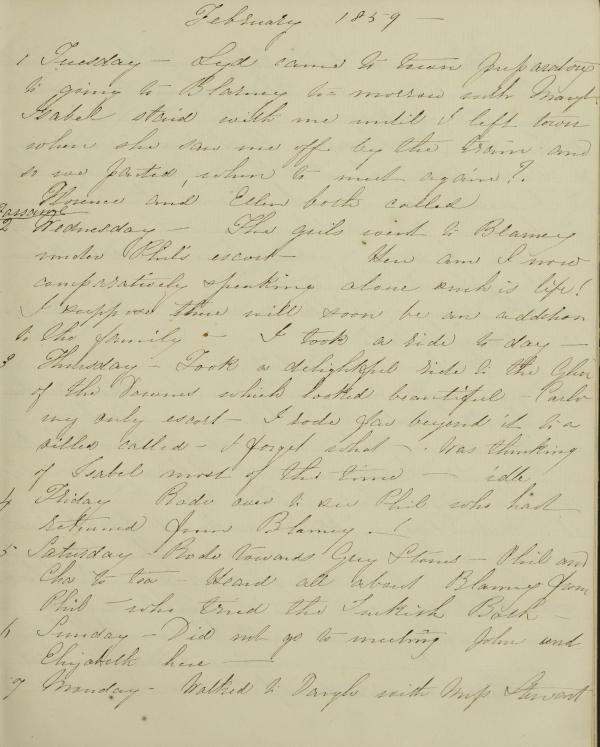 February 1859 —
1 Tuesday — Lyd came to town preparatory
to going to Blarney to-morrow with Margt
Isabel staid with me until I left town
when she saw me off by the train and
so we parted, when to meet again?
Florence and Ellen both called
Passage
2 Wednesday — The girls went to Blarney
under Phil's escort — Here am I now
comparatively speaking alone such is life!
I suppose there will soon be an addition
to the family — I took a ride to day —
3 Thursday — Took a delightful ride to the Glen
of the Downs which looked beautiful — Carlo
my only escort — I rode far beyond it to a
village called — I forget what — Was thinking
of Isabel most of the time — idle
4 Friday Rode over to see Phil who had
returned from Blarney —!
5 Saturday — Rode towards Grey Stones — Phil and
Cha to tea — Heard all about Blarney from
Phil — who tried the Turkish Bath —
6 Sunday — Did not go to meeting John and
Elizabeth here —
7 Monday — Walked to Dargle with Miss Stewart